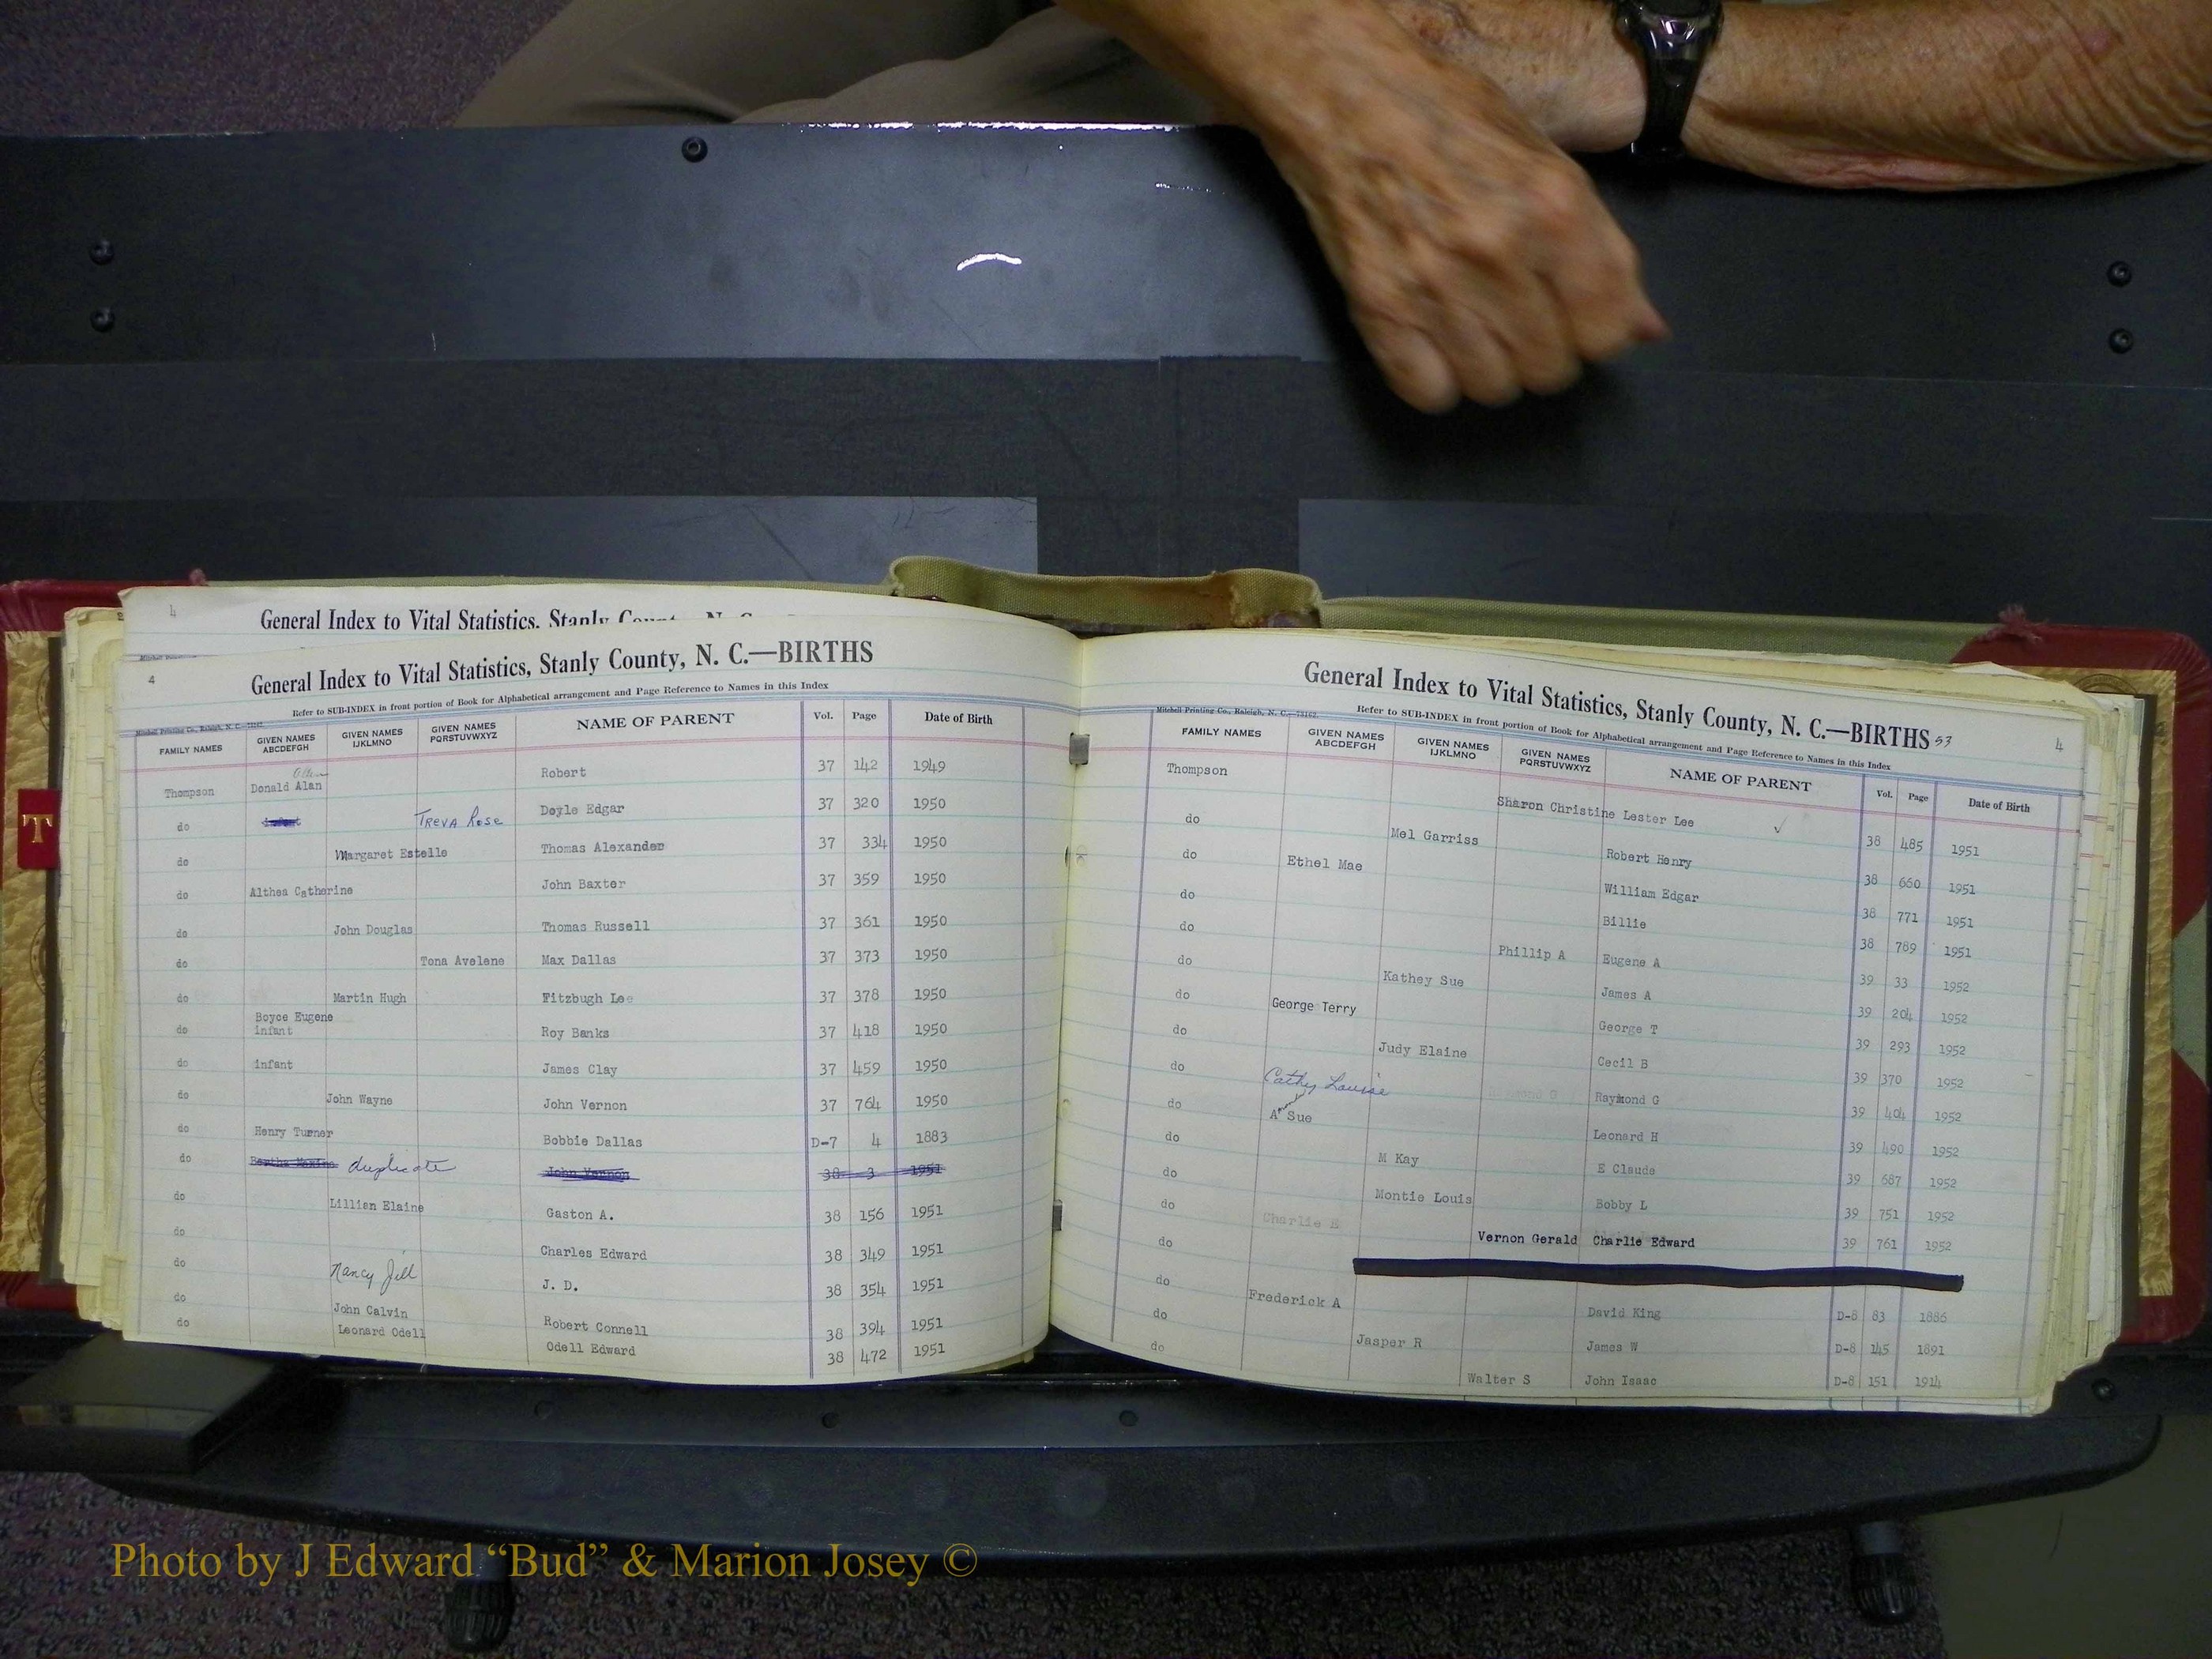 4
General Index to Vital Statistics, Stanly
4
General Index to Vital Statistics, Stanly County, N. C.—BIRTHS
Refer to SUB-INDEX in front portion of Book for Alphabetical arrangement and Page Reference to Names in this Index
Mitchell Printing Co., Raleigh, N. C.
FAMILY NAMES GIVEN NAMES ABCDEFGH GIVEN NAMES IJKLMNO GIVEN NAMES PQRSTUVWXYZ NAME OF PARENT Vol. Page Date of Birth
Thompson Donald Alan Robert 37 142 1949
do infant Treva Rose Doyle Edgar 37 320 1950
do Margaret Estelle Thomas Alexander 37 334 1950
do Althea Catherine John Baxter 37 359 1950
do John Douglas Thomas Russell 37 361 1950
do Tona Avelene Max Dallas 37 373 1950
do Martin Hugh Fitzbugh Lee 37 378 1950
Boyce Eugene
do infant Roy Banks 37 418 1950
do infant James Clay 37 459 1950
do John Wayne John Vernon 37 764 1950
do Henry Turner Bobbie Dallas D-7 4 1883
do Bertha Maxine duplicate John Vernon 38 3 1951
do Lillian Elaine Gaston A. 38 156 1951
do Charles Edward 38 349 1951
do Nancy Jill J. D. 38 354 1951
do John Calvin Robert Connell 38 394 1951
do Leonard Odell Odell Edward 38 472 1951
T
General Index to Vital Statistics, Stanly County, N. C.—BIRTHS 53
4
Mitchell Printing Co., Raleigh, N. C.—73162
Refer to SUB-INDEX in front portion of Book for Alphabetical arrangement and Page Reference to Names in this Index
FAMILY NAMES GIVEN NAMES ABCDEFGH GIVEN NAMES IJKLMNO GIVEN NAMES PQRSTUVWXYZ NAME OF PARENT Vol. Page Date of Birth
Thompson Sharon Christine Lester Lee ✓ 38 485 1951
do Mel Garriss Robert Henry 38 660 1951
do Ethel Mae William Edgar 38 771 1951
do Billie 38 789 1951
do Phillip A Eugene A 39 33 1952
do Kathey Sue James A 39 204 1952
do George Terry George T 39 293 1952
do Judy Elaine Cecil B 39 370 1952
do Cathy Louise Raymond G 39 404 1952
do A Sue Leonard H 39 490 1952
do M Kay E Claude 39 687 1952
do Montie Louis Bobby L 39 751 1952
do Charlie E Vernon Gerald Charlie Edward 39 761 1952
do
do Frederick A David King D-8 83 1886
do Jasper R James W D-8 145 1891
do Walter S John Isaac D-8 151 1914
Photo by J Edward “Bud” & Marion Josey ©